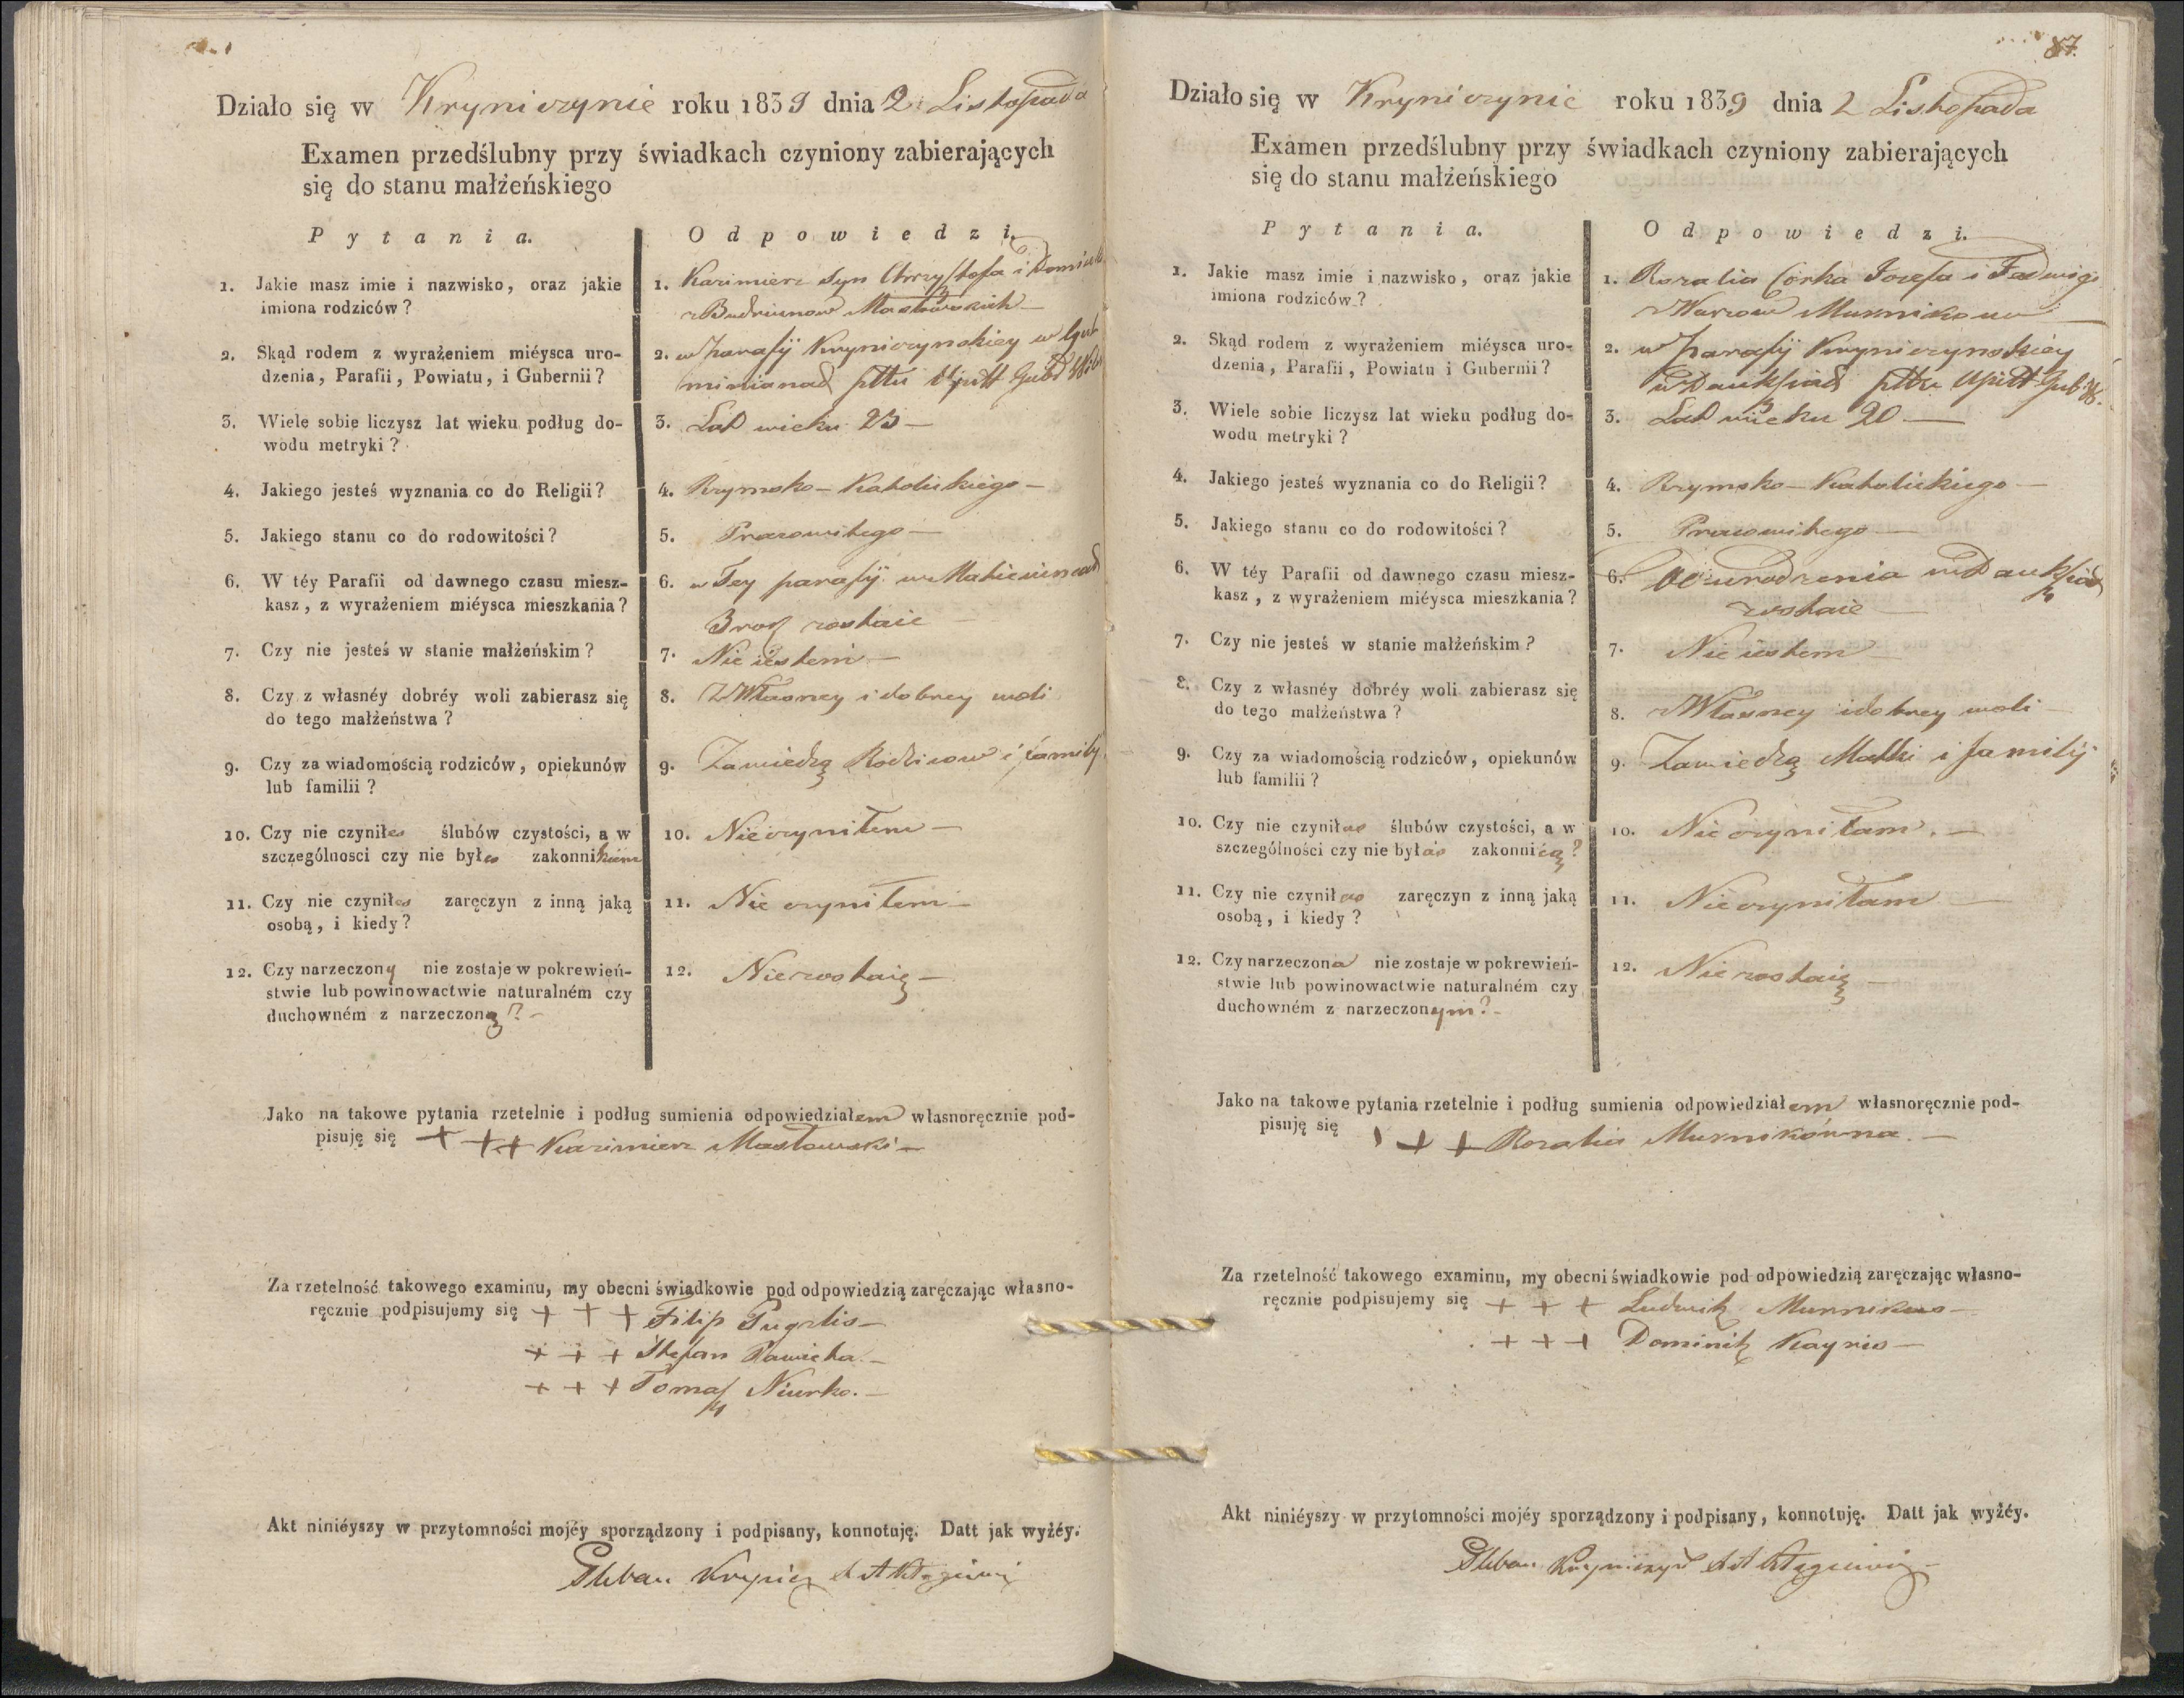 Działo się w Kryniczynie roku 1839 dnia 2 Listopada
Examen przedślubny przy świadkach czyniony zabierających
się do stanu małżeńskiego
Pytania.
Odpowiedzi.
1. Jakie masz imie i nazwisko, oraz jakie
imiona rodziców?
1. Kazimierz Syn Chrzysztofa i
z Budriunow Masłowskich
2. Skąd rodem z wyrażeniem miéysca uro-
dzenia, Parafii, Powiatu, i Gubernii?
2. w Parafij Kryniczynskiey w
pttu Upitt Gub
3. Wiele sobie liczysz lat wieku podług do-
wodu metryki?
3. Lat wieku 23
4. Jakiego jesteś wyznania co do Religii?
4. Rzymsko-Katolickiego
5. Jakiego stanu co do rodowitości?
5. Pracowitego
6. W téy Parafii od dawnego czasu miesz-
kasz, z wyrażeniem miéysca mieszkania?
6. w Tey parafij w
zostaie
7. Czy nie jesteś w stanie małżeńskim?
7. Nie iestem
8. Czy z własnéy dobréy woli zabierasz się
do tego małżeństwa?
8. Z Własney i dobrey woli
9. Czy za wiadomością rodziców, opiekunów
lub familii?
9. Zawiedzą Rodzicow i familij
10. Czy nie czyniłes ślubów czystości, a w
szczególnosci czy nie byłes zakonnikiem
10. Nieczyniłem
11. Czy nie czyniłes zaręczyn z inną jaką
osobą, i kiedy?
11. Nie czyniłem
12. Czy narzeczony nie zostaje w pokrewień-
stwie lub powinowactwie naturalném czy
duchowném z narzeczoną?
12. Niezostaię
Jako na takowe pytania rzetelnie i podług sumienia odpowiedziałem własnoręcznie pod-
pisuję się + + + Kazimierz Masłowski
Za rzetelność takowego examinu, my obecni świadkowie pod odpowiedzią zaręczając własno-
ręcznie podpisujemy się + + + Filip Pugzlis
+ + + Stefan
+ + + Tomasz Niurko.
Akt niniéyszy w przytomności mojéy sporządzony i podpisany, konnotuję. Datt jak wyżéy.
Pleban
87.
Działo się w Kryniczynie roku 1839 dnia 2 Listopada
Examen przedślubny przy świadkach czyniony zabierających
się do stanu małżeńskiego
Pytania.
Odpowiedzi.
1. Jakie masz imie i nazwisko, oraz jakie
imiona rodziców?
1. Rozalia Corka Jozefa i Jadwigi
Murnikow
2. Skąd rodem z wyrażeniem miéysca uro-
dzenia, Parafii, Powiatu i Gubernii?
2. w Parafij Kryniczynskiey
w Dauksziad pttu Upitt Gub W.
3. Wiele sobie liczysz lat wieku podług do-
wodu metryki?
3. Lat wieku 20
4. Jakiego jesteś wyznania co do Religii?
4. Rzymsko-Katolickiego
5. Jakiego stanu co do rodowitości?
5. Pracowitego
6. W téy Parafii od dawnego czasu miesz-
kasz, z wyrażeniem miéysca mieszkania?
6. Od urodzenia w Dauksziad
zostaie
7. Czy nie jesteś w stanie małżeńskim?
7. Nie iestem
8. Czy z własnéy dobréy woli zabierasz się
do tego małżeństwa?
8. z Własney i dobrey woli
9. Czy za wiadomością rodziców, opiekunów
lub familii?
9. Zawiedzą Matki i familij
10. Czy nie czyniłas ślubów czystości, a w
szczególności czy nie byłas zakonnicą?
10. Nie czyniłam.
11. Czy nie czyniłas zaręczyn z inną jaką
osobą, i kiedy?
11. Nieczyniłam
12. Czy narzeczona nie zostaje w pokrewień-
stwie lub powinowactwie naturalném czy
duchowném z narzeczonym?
12. Niezostaię
Jako na takowe pytania rzetelnie i podług sumienia odpowiedziałem własnoręcznie pod-
pisuję się + + + Rozalia Murnikówna.
Za rzetelność takowego examinu, my obecni świadkowie pod odpowiedzią zaręczając własno-
ręcznie podpisujemy się + + + Ludwik Murnikas
+ + + Dominik Kayris
Akt niniéyszy w przytomności mojéy sporządzony i podpisany, konnotuję. Datt jak wyżéy.
Pleban